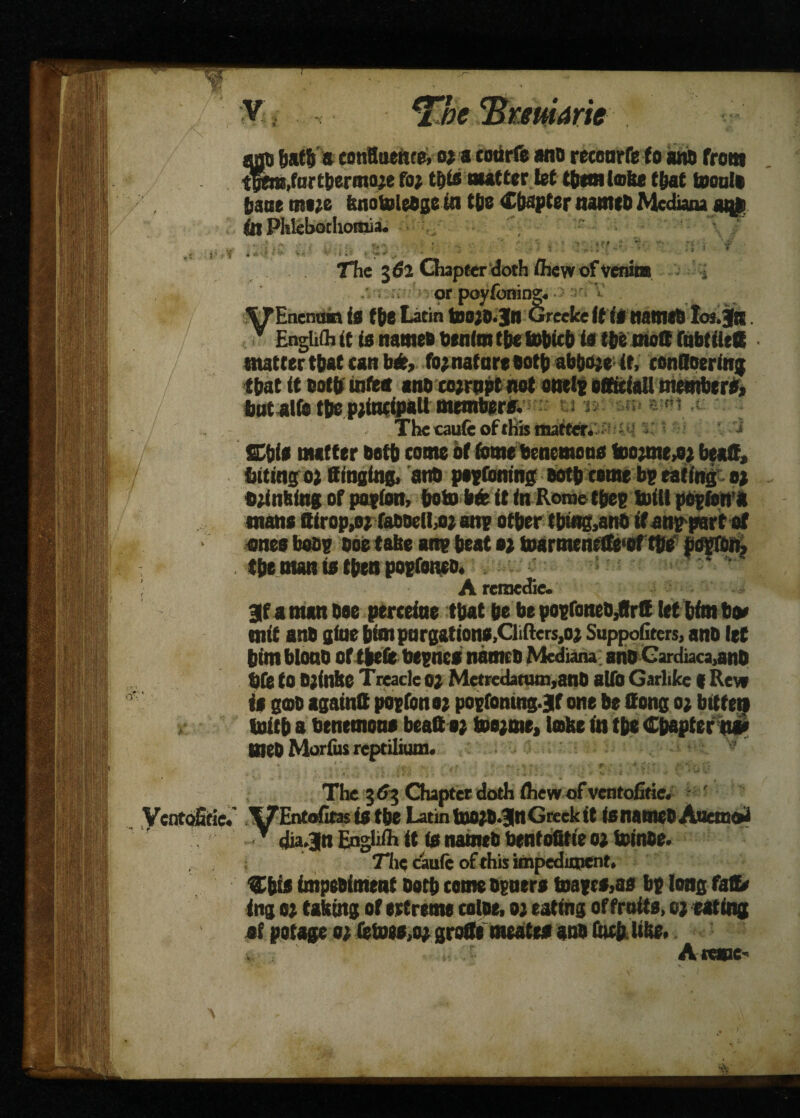 V. The Breuiarie
and hath a confluence, or a courſe and recourſe to and from
them, furthermore for this matter let them looke that would
haue more knowledge in the Chapter named Mediana and
in Phlebothomia.
The 362 Chapter doth ſhew of venim
or poyſoning.
VEnenum is the Latin word. In Greeke it is named Ios. In
Engliſh it is named venim the which is the moſt ſubtileſt
matter that can bée, for nature doth abhore it, conſidering
that it doth infect and corrupt not onely officiall members,
but alſo the principall members.
The cauſe of this matter.
This matter doth come of ſome venemous worme, or beaſt,
biting or ſtinging, and poyſoning doth come by eating or
drinking of poyſon, how bée it in Rome they will poyſon a
mans ſtirop, or ſaddell, or any other thing, and if any part of
ones body doe take any heat or warmeneſſe of the poyſon,
the man is then poyſoned.
A remedie.
If a man doe perceiue that he be poyſoned, firſt let him vo-
mit and giue him purgations, Cliſters, or Suppoſiters, and let
him bloud of theſe veynes named Mediana and Cardiaca, and
vſe to drinke Treacle or Metredatum, and alſo Garlike & Rew
is good againſt poyſon or poyſoning. If one be ſtong or bitten
with a venemous beaſt or worme, looke in the Chapter na-
med Morſus reptilium.
The 363 Chapter doth ſhew of ventoſitie.
Ventoſitie. VEntoſitas is the Latin word. In Greek it is named Auemod
dia. In Engliſh it is named ventoſitie or winde.
The cauſe of this impediment.
This impediment doth come dyuers wayes, as by long faſt-
ing or taking of extreme colde, or eating of fruits, or eating
of potage or ſewes, or groſſe meates and ſuch like.
A reme-